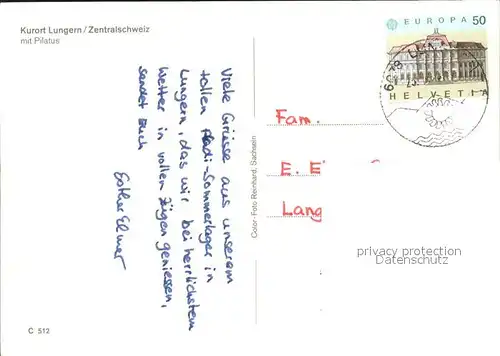 Kurort Lungern/Zentralschweiz
mit Pilatus
Viele Grüsse aus unserem
tollen Pfadi-Sommerlager in
Lungern, das wir bei herrlichstem
Wetter in vollen Zügen geniessen,
sendet Euch
Esther Elmer
C 512
Color-Foto Reinhard, Sachseln
EUROPA 50
HELVETIA
Fam.
E. E
Lang
privacy protection
Datenschutz